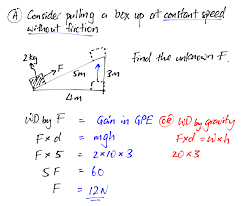 (A) Consider pulling a box up at constant speed
without friction
2kg
F
5m
3m
4m
Find the unknown F.
WD by F = Gain in GPE
WD by gravity
F × d = mgh
F×d = w×h
F × 5 = 2×10×3
20×3
5F = 60
F = 12N